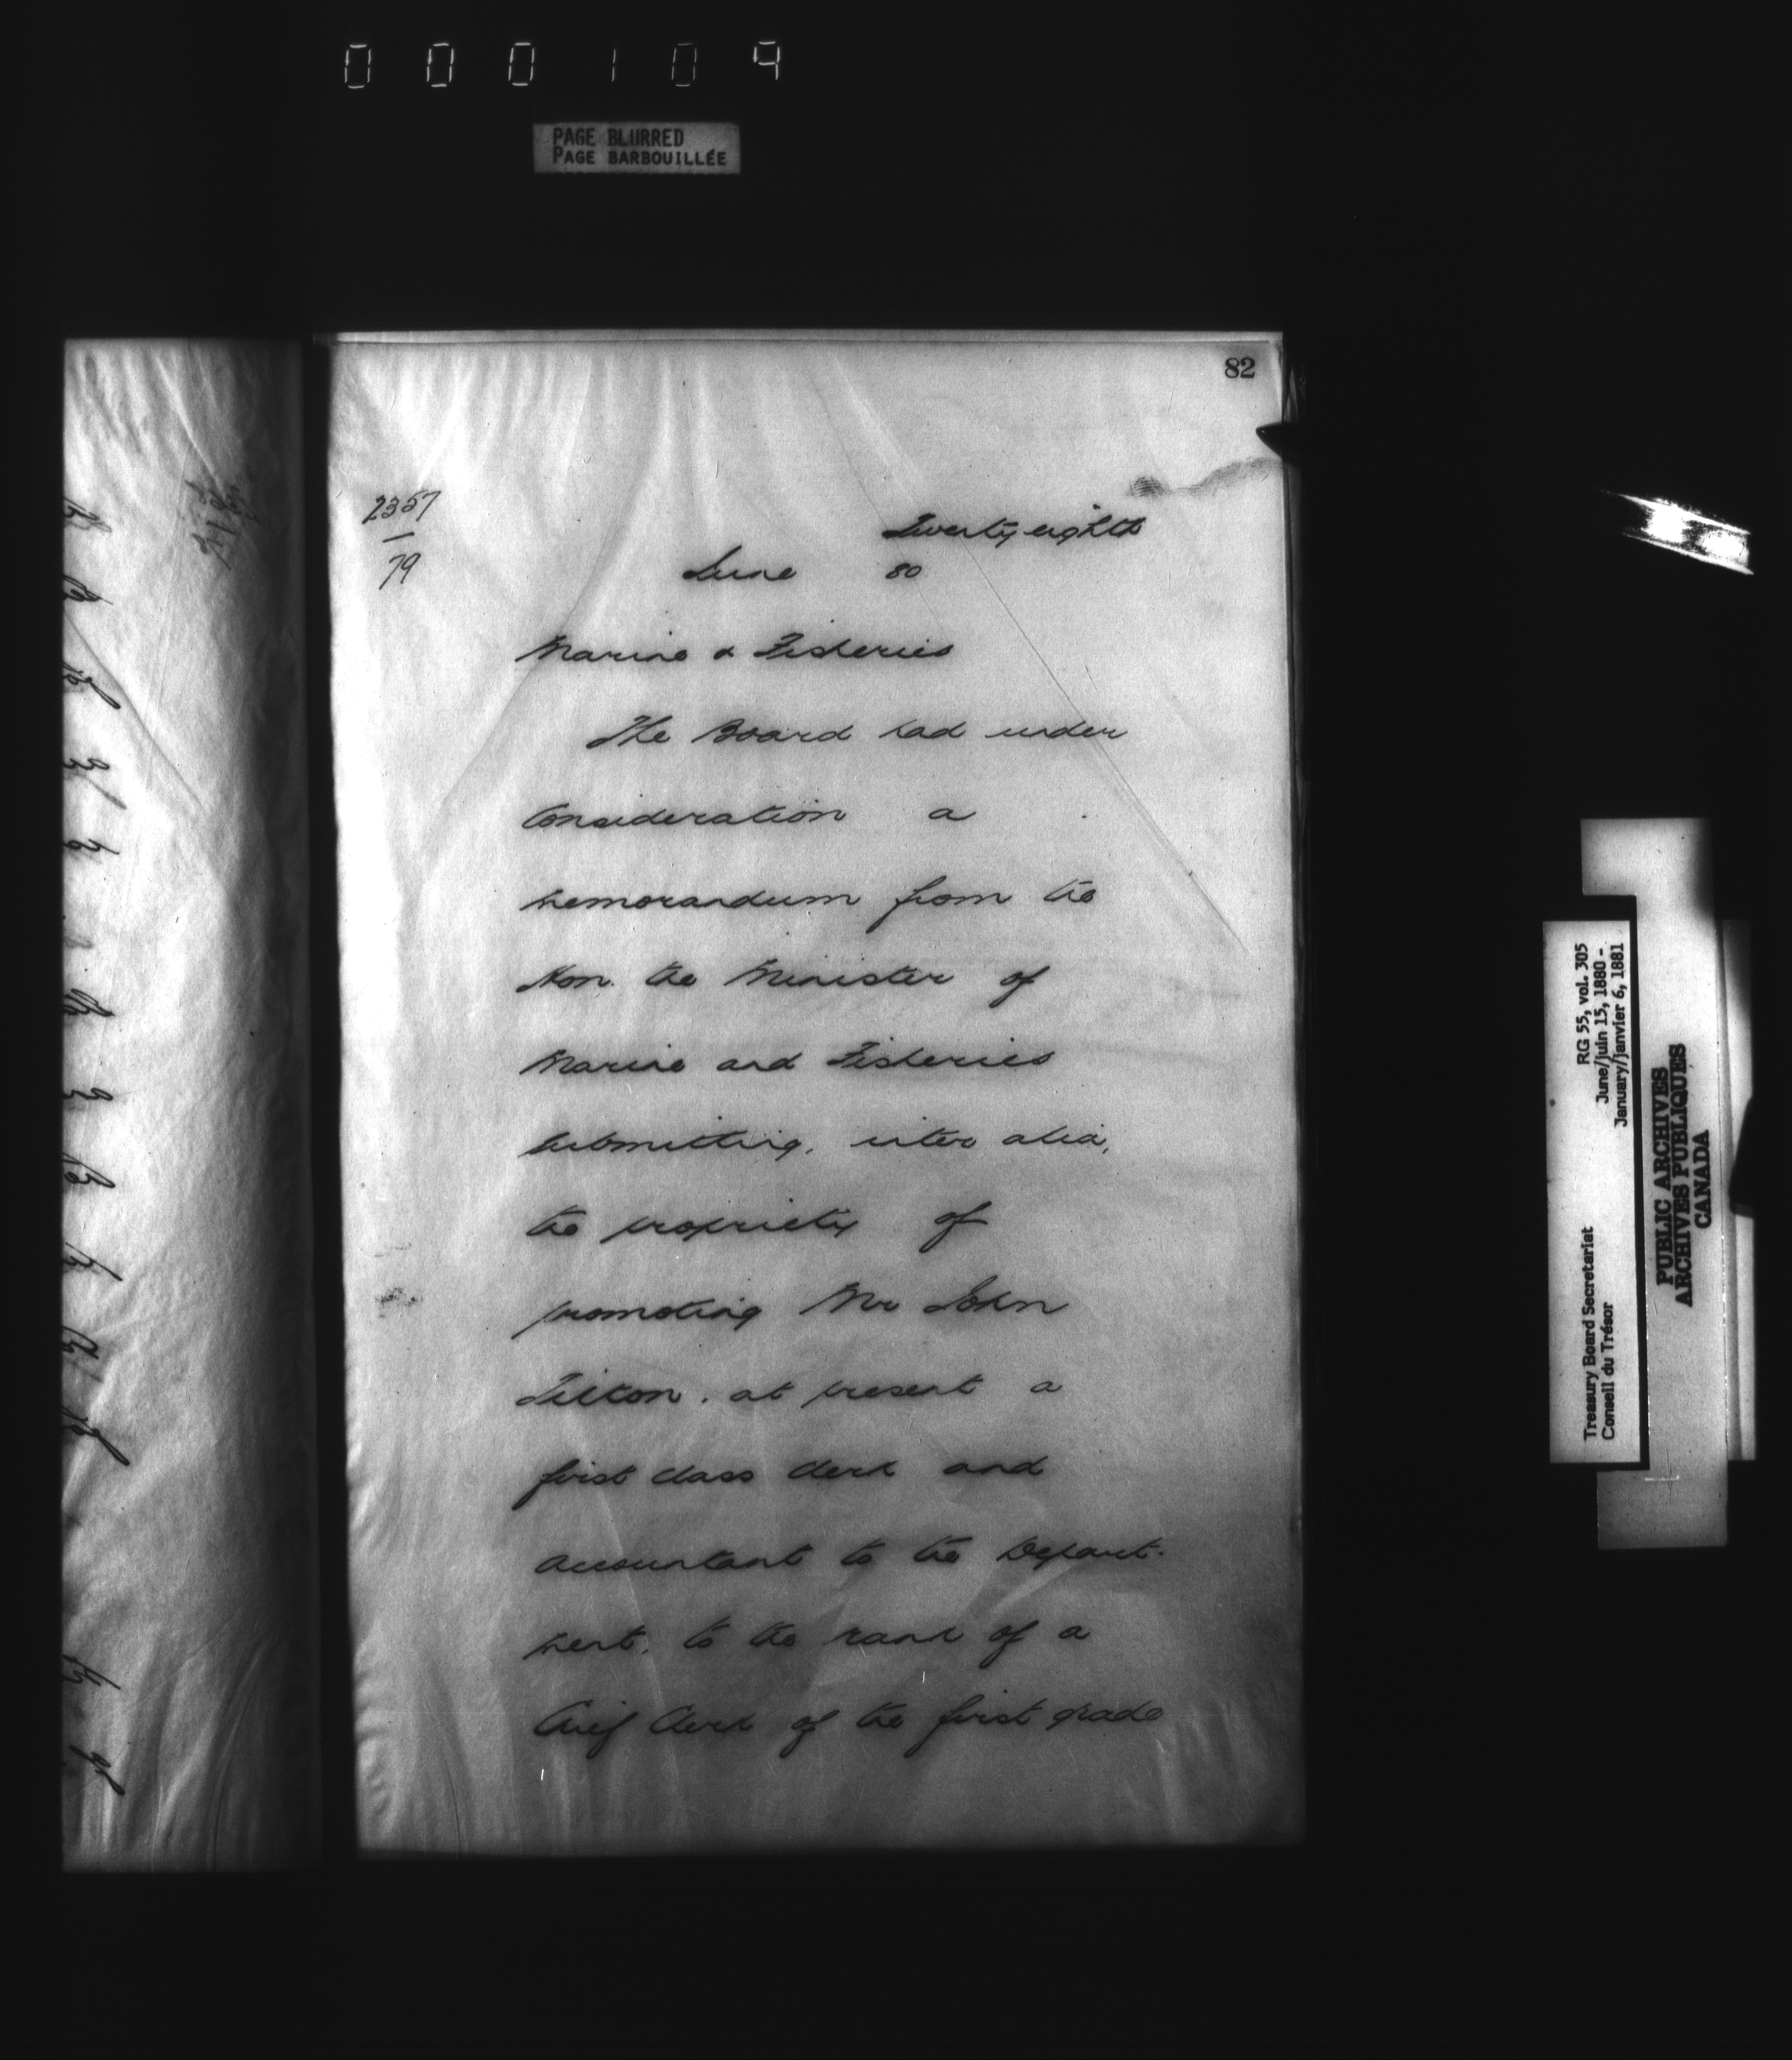 000109
PAGE BLURRED
PAGE BARBOUILLÉE
82
2357
79
Twenty eighth
June 80
Marine & Fisheries
The Board had under
Consideration a
memorandum from the
Hon. the Minister of
Marine and Fisheries
submitting, inter alia,
the propriety of
promoting Mr John
Tilton, at present a
first class clerk and
accountant to the Depart-
ment, to the rank of a
Chief Clerk of the first grade
RG 55, vol. 305
June/juin 15, 1880 -
January/janvier 6, 1881
Treasury Board Secretariat
Conseil du Trésor
PUBLIC ARCHIVES
ARCHIVES PUBLIQUES
CANADA